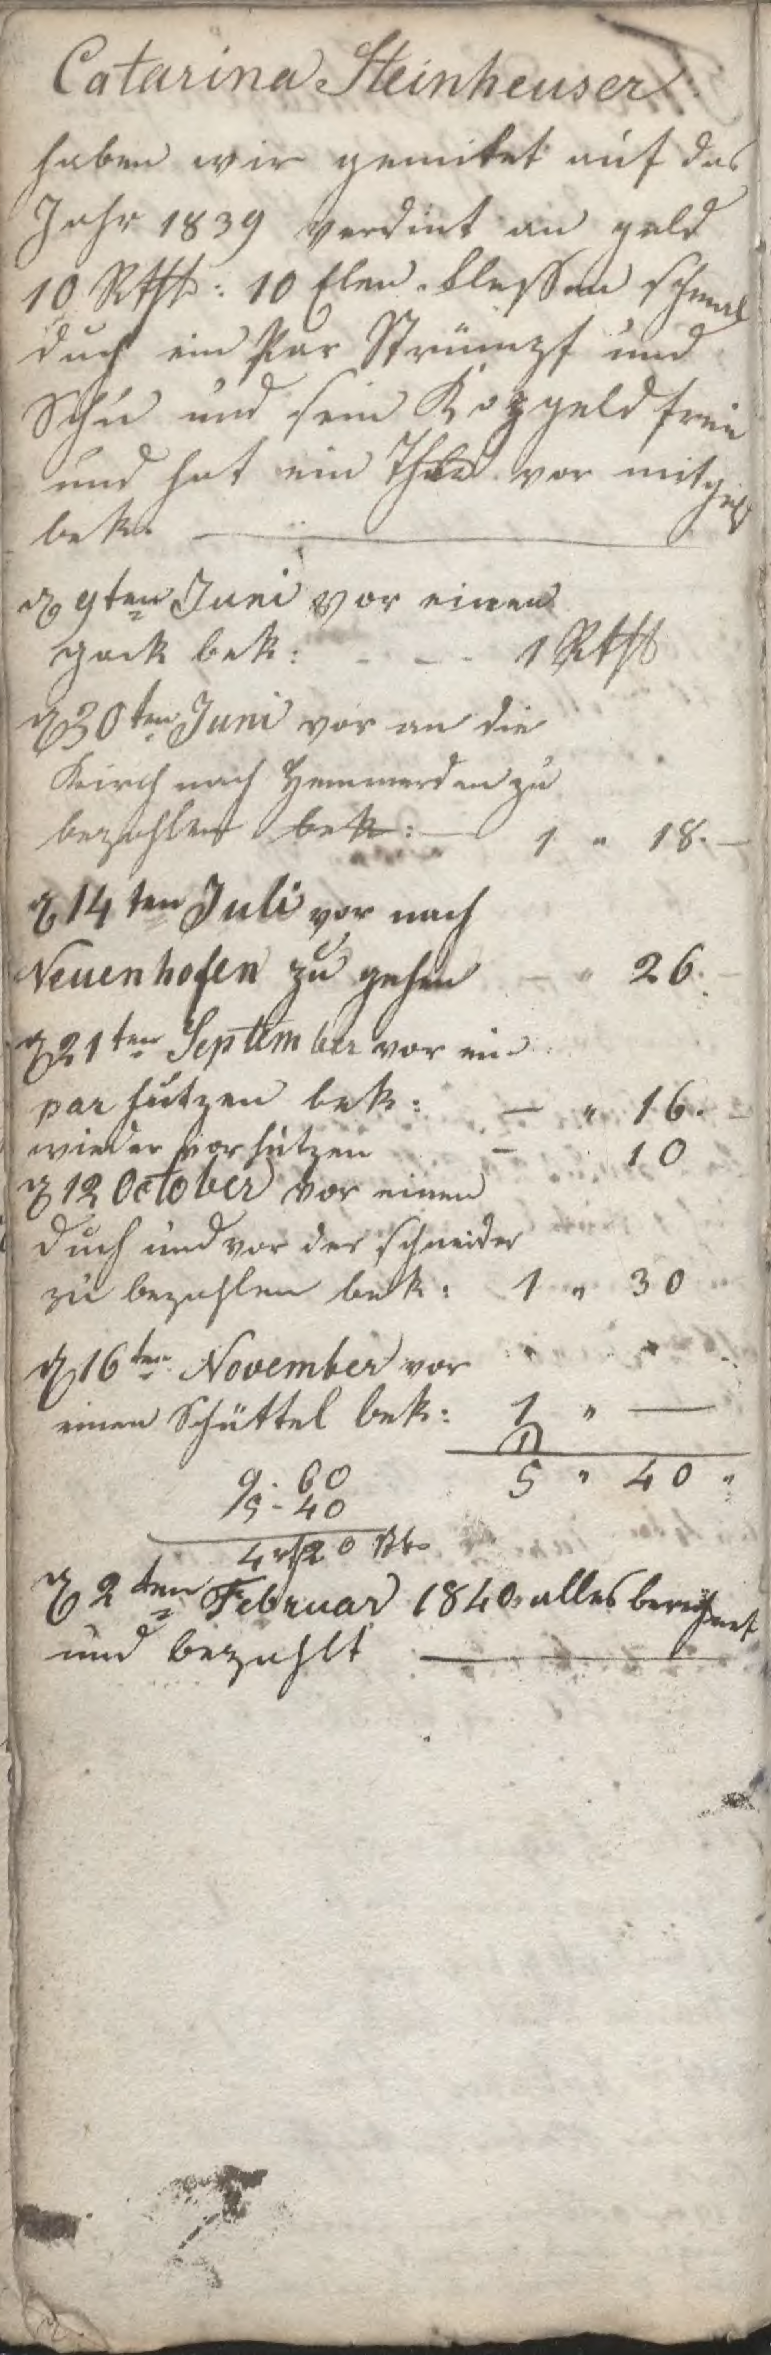 Catarina Steinheuser
haben wir gemitet auf das
Jahr 1839 verdint an geld
10 Rthl: 10 Elen flessen schmal
duch ein Par Strümpf und
Schu und sein Kopgeld frei
und hat ein Thlr vor mitgelt
bek:
d 9ten Juni vor einen
gack bek: - - - 1 Rthl
d 30ten Juni vor an die
Kirch nach Hemmerden zu
bezahlen bek: — 1 " 18. —
d 14ten Juli vor nach
Neuenhofen zu gehen — " 26. —
d 21ten September vor ein
par hutzen bek: — " 16. —
wieder vor hutzen — 10
d 12 October vor einen
duch und vor der schneider
zu bezahlen bek: 1 " 30
d 16ten November vor
einen Schüttel bek: 1 " —
5 " 40 "
9 - 60
5 - 40
4 rt 20
d 2ten Februar 1840 alles berechnet
und bezahlt —